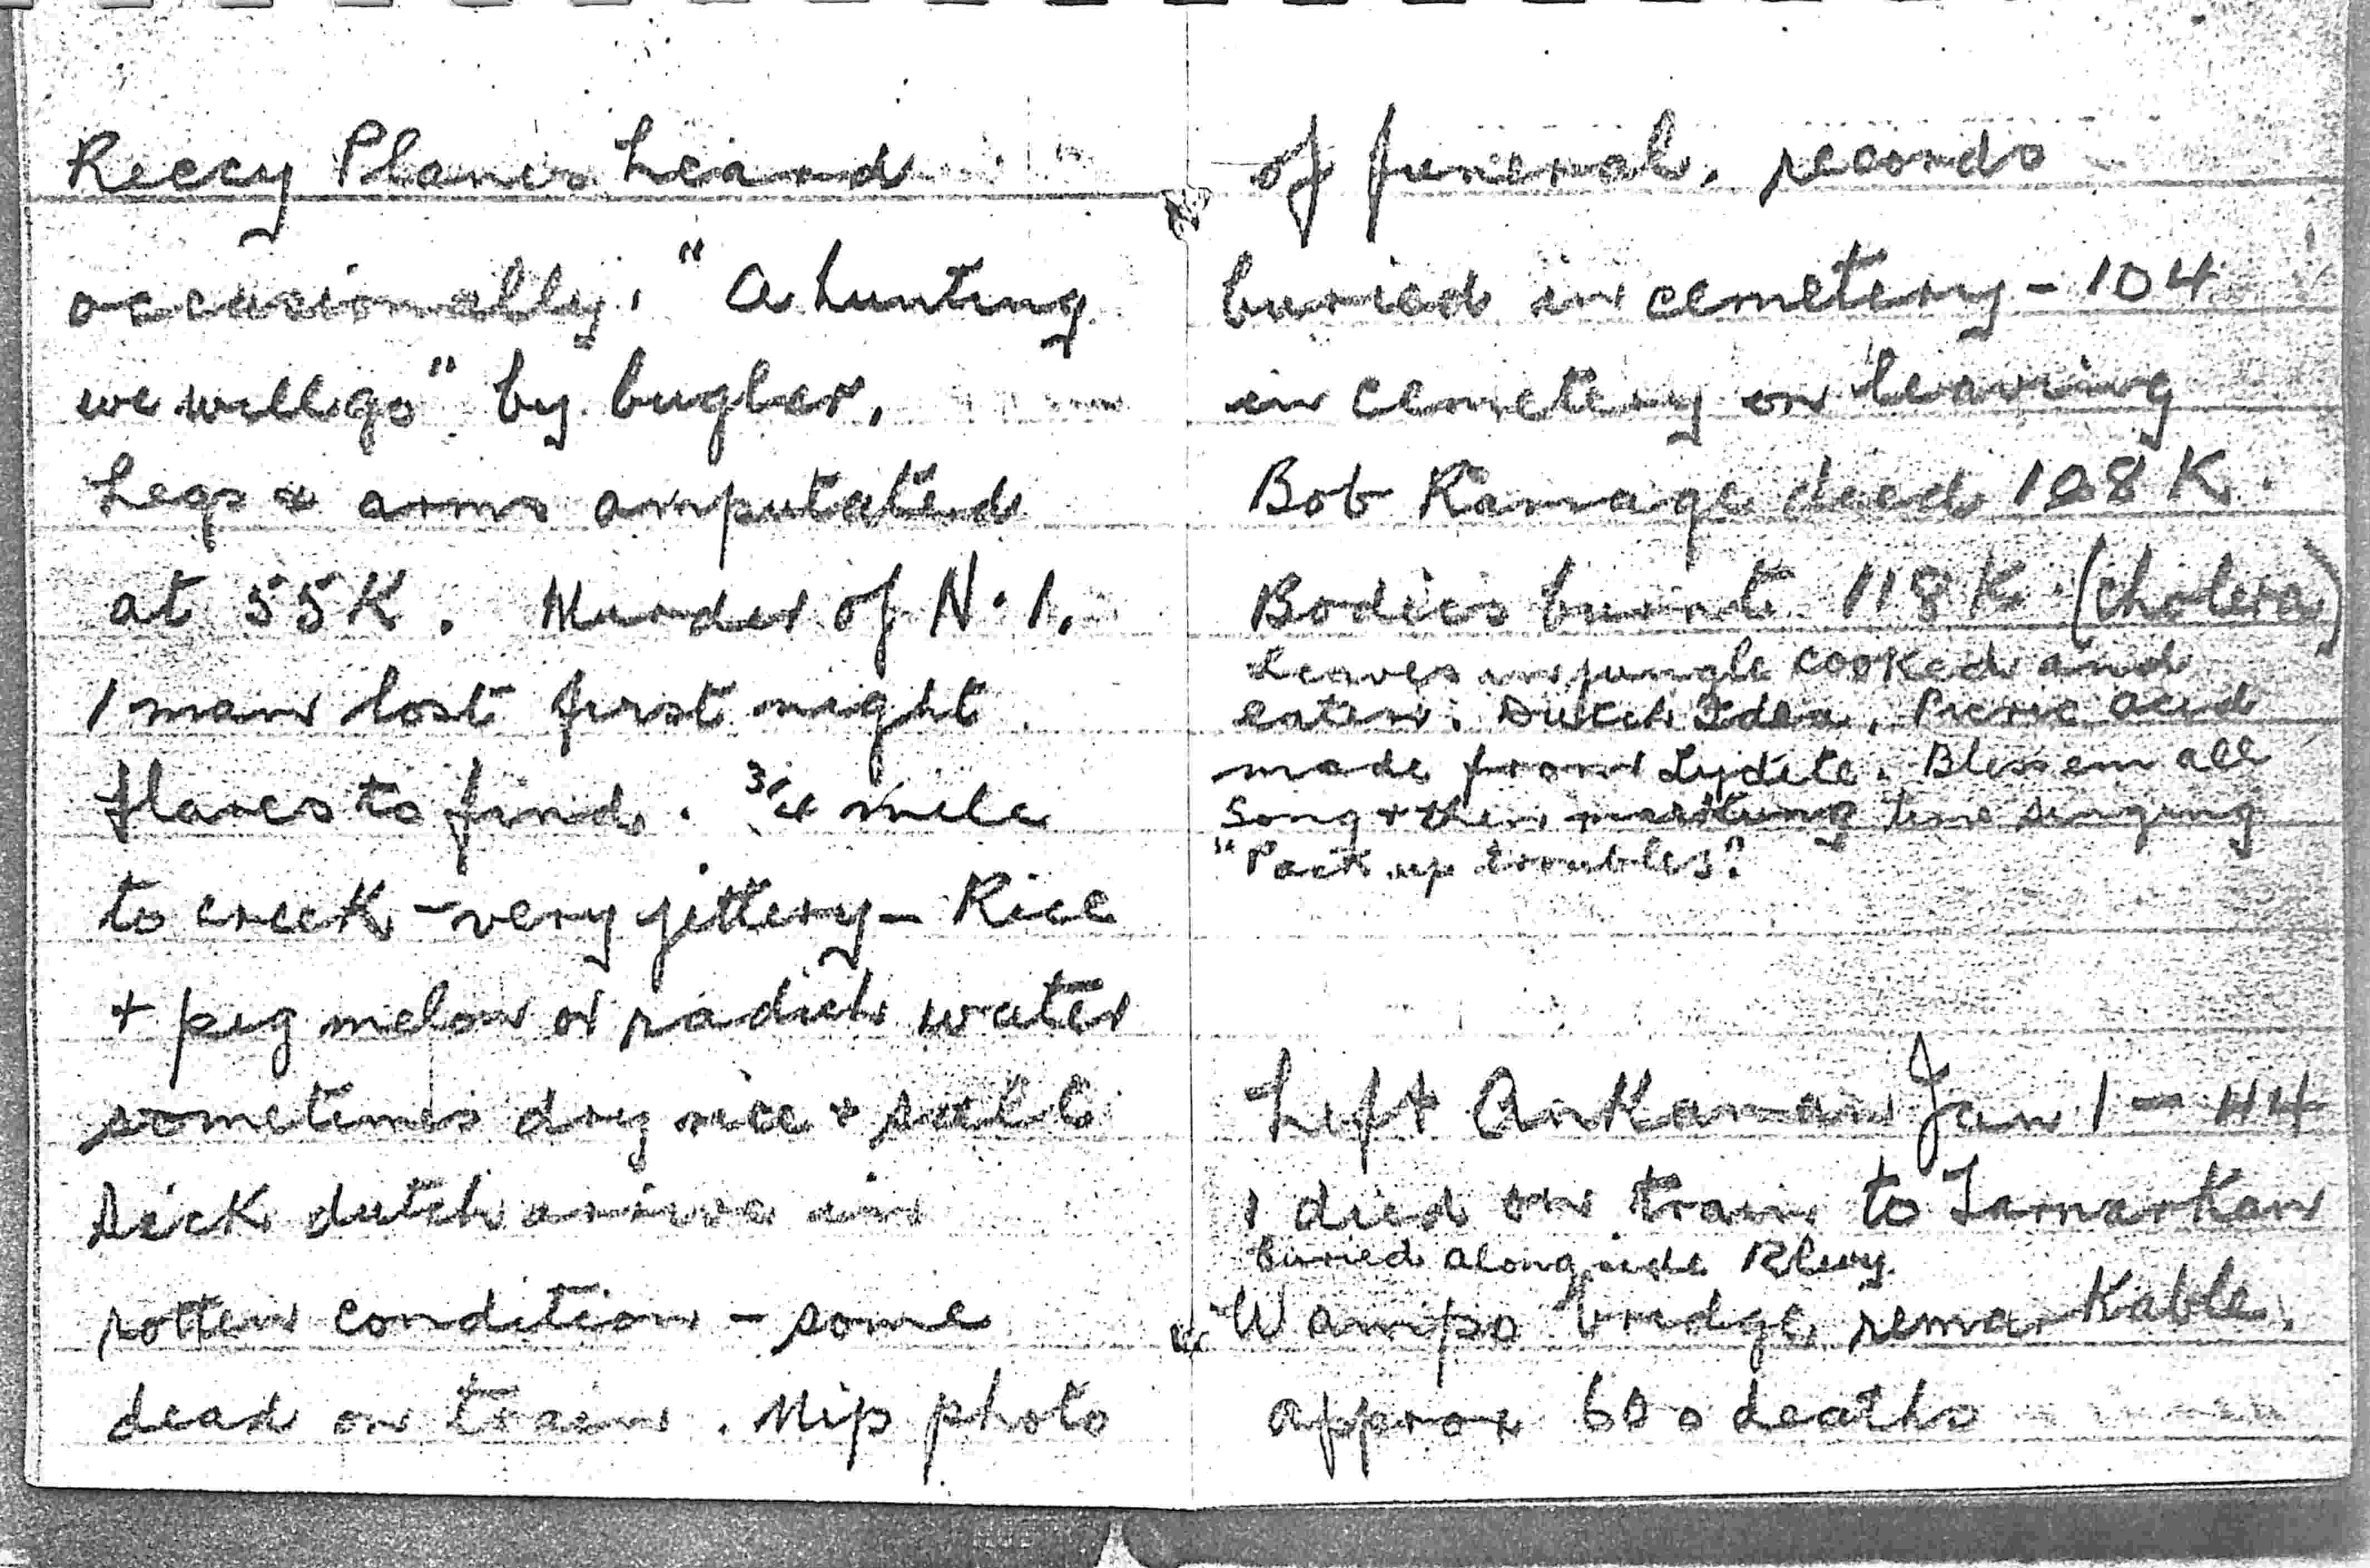 Reccy Planes heard
occasionally. "A hunting
we will go" by bugler.
Legs & arms amputated
at 55K. Murder of N.1.
1 man lost first night.
flares to find. 3/4 mile
to creek - very jittery - Rice
+ pig melon or radish water
sometimes dry rice & salt
Sick dutch arrive in
rotten condition - some
dead on train. Nip photo
of funeral. records
buried in cemetery - 104
in cemetery on leaving
Bob Ramage died 108 K.
Bodies burnt 118 K. (Cholera)
Leaves in jungle cooked and
eaten. Dutch Idea. Picric acid
made from Lydite. Bless em all
Song & then marking time singing
"Pack up troubles".
Left Ankanan Jan 1 - 44
1 died on train to Tamarkan
buried alongside Rlwy.
Wampo bridge remarkable.
approx 600 deaths